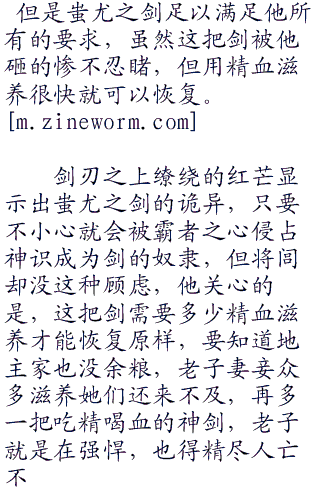 但是蚩尤之剑足以满足他所
有的要求，虽然这把剑被他
砸的惨不忍睹，但用精血滋
养很快就可以恢复。
[m.zineworm.com]
剑刃之上缭绕的红芒显
示出蚩尤之剑的诡异，只要
不小心就会被霸者之心侵占
神识成为剑的奴隶，但将闾
却没这种顾虑，他关心的
是，这把剑需要多少精血滋
养才能恢复原样，要知道地
主家也没余粮，老子妻妾众
多滋养她们还来不及，再多
一把吃精喝血的神剑，老子
就是在强悍，也得精尽人亡
不